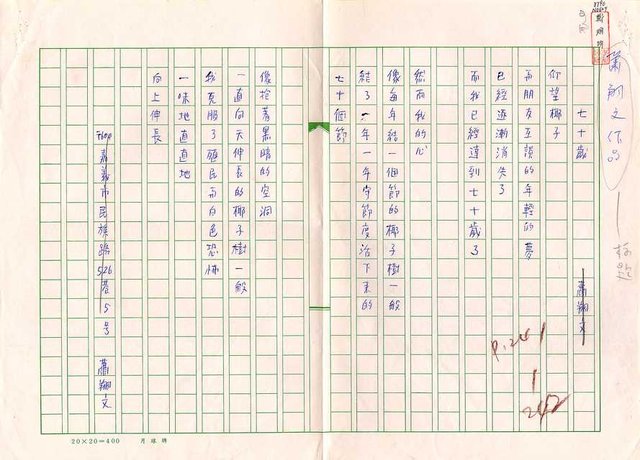 蕭翔文作品
七十歲
蕭翔文
仰望椰子
而朋友互談的年輕的夢
已經逐漸消失了
而我已經達到七十歲了
然而我的心
像每年結一個節的椰子樹一般
結了一年一年守節度活下來的
七十個節
像搶著黑暗的空洞
一直向天伸長的椰子樹一般
我克服了殖民而白色恐怖
一味地直直地
向上伸長
嘉義市民族路526巷5号
蕭翔文
P.241
242
20×20=400